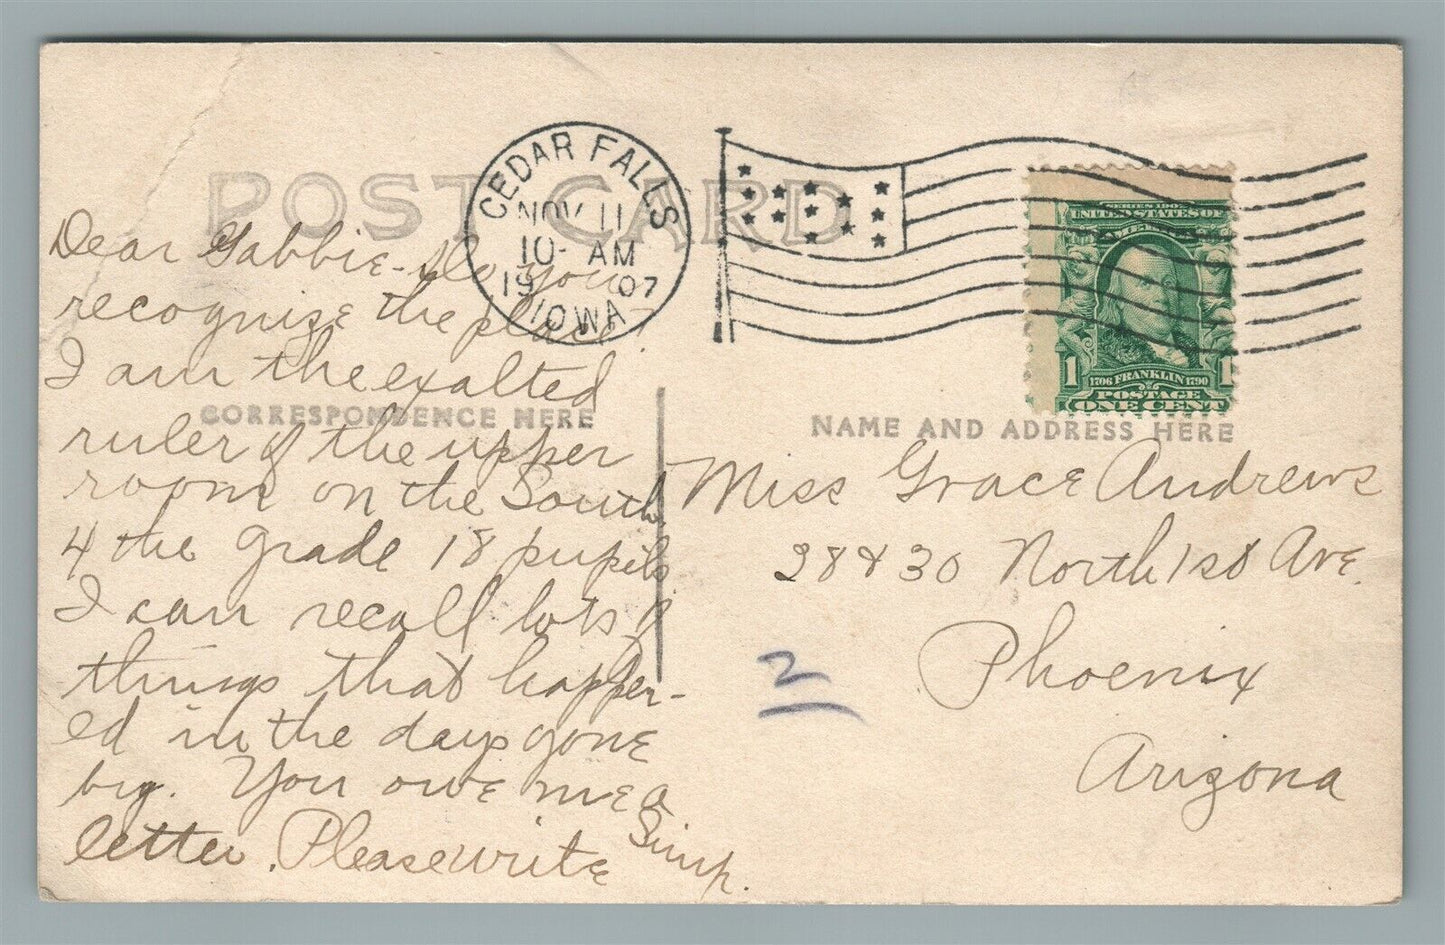 POST CARD
CEDAR FALLS
NOV 11
10- AM
1907
IOWA
SERIES 1902
UNITED STATES OF
AMERICA
1
1706 FRANKLIN 1790
POSTAGE
ONE CENT
CORRESPONDENCE HERE
NAME AND ADDRESS HERE
Dear Gabbie - Do you
recognize the place?
I am the exalted
ruler of the upper
room on the South.
4 the grade 18 pupils
I can recall lots of
things that happen-
ed in the days gone
by. You owe me a
letter. Please write
Simp.
Miss Grace Andrews
28 & 30 North 1st Ave.
Phoenix
Arizona
2